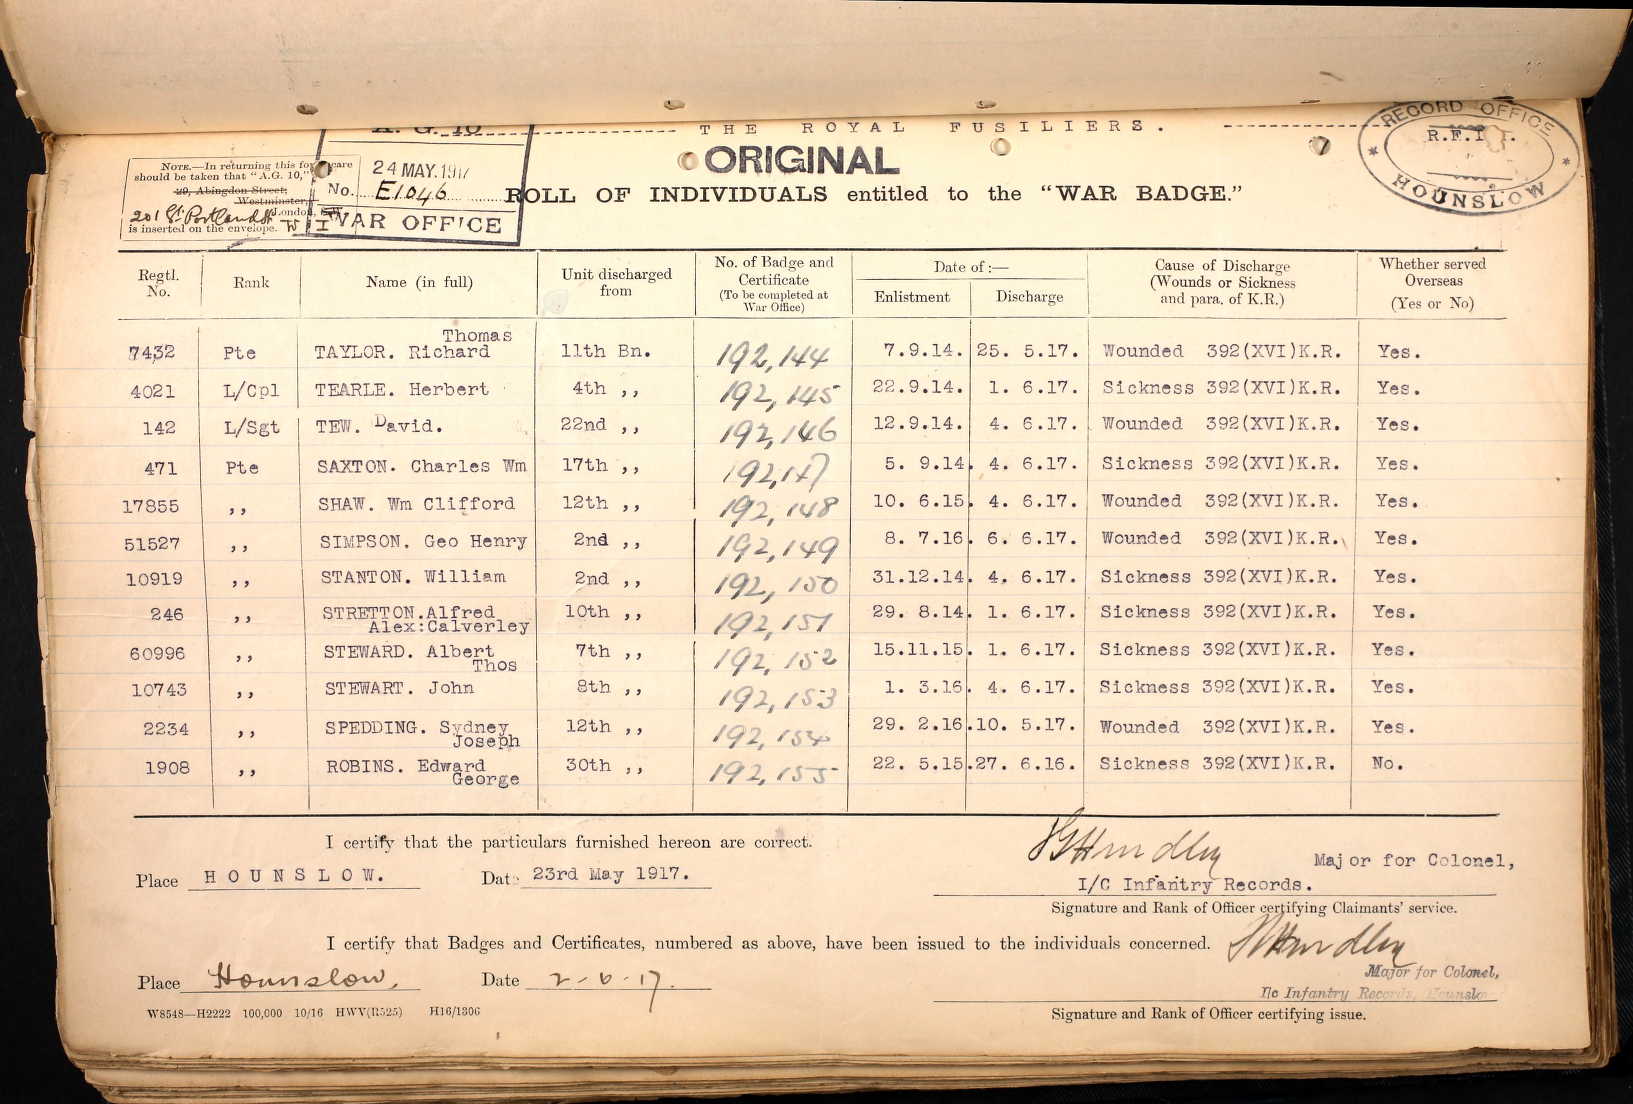 THE ROYAL FUSILIERS.
ORIGINAL
ROLL OF INDIVIDUALS entitled to the "WAR BADGE."
NOTE.—In returning this form care
should be taken that "A.G. 10,"
29, Abingdon Street,
Westminster,
201 Gt Portland St London, W I
is inserted on the envelope.
A. G. 10
24 MAY. 1917
No. E1046
WAR OFFICE
RECORD OFFICE
HOUNSLOW
Regtl. No. Rank Name (in full) Unit discharged from No. of Badge and Certificate (To be completed at War Office) Date of:— Enlistment Discharge Cause of Discharge (Wounds or Sickness and para. of K.R.) Whether served Overseas (Yes or No)
7432 Pte TAYLOR. Richard Thomas 11th Bn. 192,144 7.9.14. 25. 5.17. Wounded 392(XVI)K.R. Yes.
4021 L/Cpl TEARLE. Herbert 4th ,, 192,145 22.9.14. 1. 6.17. Sickness 392(XVI)K.R. Yes.
142 L/Sgt TEW. David. 22nd ,, 192,146 12.9.14. 4. 6.17. Wounded 392(XVI)K.R. Yes.
471 Pte SAXTON. Charles Wm 17th ,, 192,147 5. 9.14. 4. 6.17. Sickness 392(XVI)K.R. Yes.
17855 ,, SHAW. Wm Clifford 12th ,, 192,148 10. 6.15. 4. 6.17. Wounded 392(XVI)K.R. Yes.
51527 ,, SIMPSON. Geo Henry 2nd ,, 192,149 8. 7.16. 6. 6.17. Wounded 392(XVI)K.R. Yes.
10919 ,, STANTON. William 2nd ,, 192,150 31.12.14. 4. 6.17. Sickness 392(XVI)K.R. Yes.
246 ,, STRETTON.Alfred Alex:Calverley 10th ,, 192,151 29. 8.14. 1. 6.17. Sickness 392(XVI)K.R. Yes.
60996 ,, STEWARD. Albert Thos 7th ,, 192,152 15.11.15. 1. 6.17. Sickness 392(XVI)K.R. Yes.
10743 ,, STEWART. John 8th ,, 192,153 1. 3.16. 4. 6.17. Sickness 392(XVI)K.R. Yes.
2234 ,, SPEDDING. Sydney Joseph 12th ,, 192,154 29. 2.16. 10. 5.17. Wounded 392(XVI)K.R. Yes.
1908 ,, ROBINS. Edward George 30th ,, 192,155 22. 5.15. 27. 6.16. Sickness 392(XVI)K.R. No.
I certify that the particulars furnished hereon are correct.
Place HOUNSLOW. Date 23rd May 1917.
Major for Colonel,
I/C Infantry Records.
Signature and Rank of Officer certifying Claimants' service.
I certify that Badges and Certificates, numbered as above, have been issued to the individuals concerned.
Place Hounslow, Date 2-6-17.
Major for Colonel,
I/c Infantry Records, Hounslow
Signature and Rank of Officer certifying issue.
W8548—H2222 100,000 10/16 HWV(R525) H16/1306